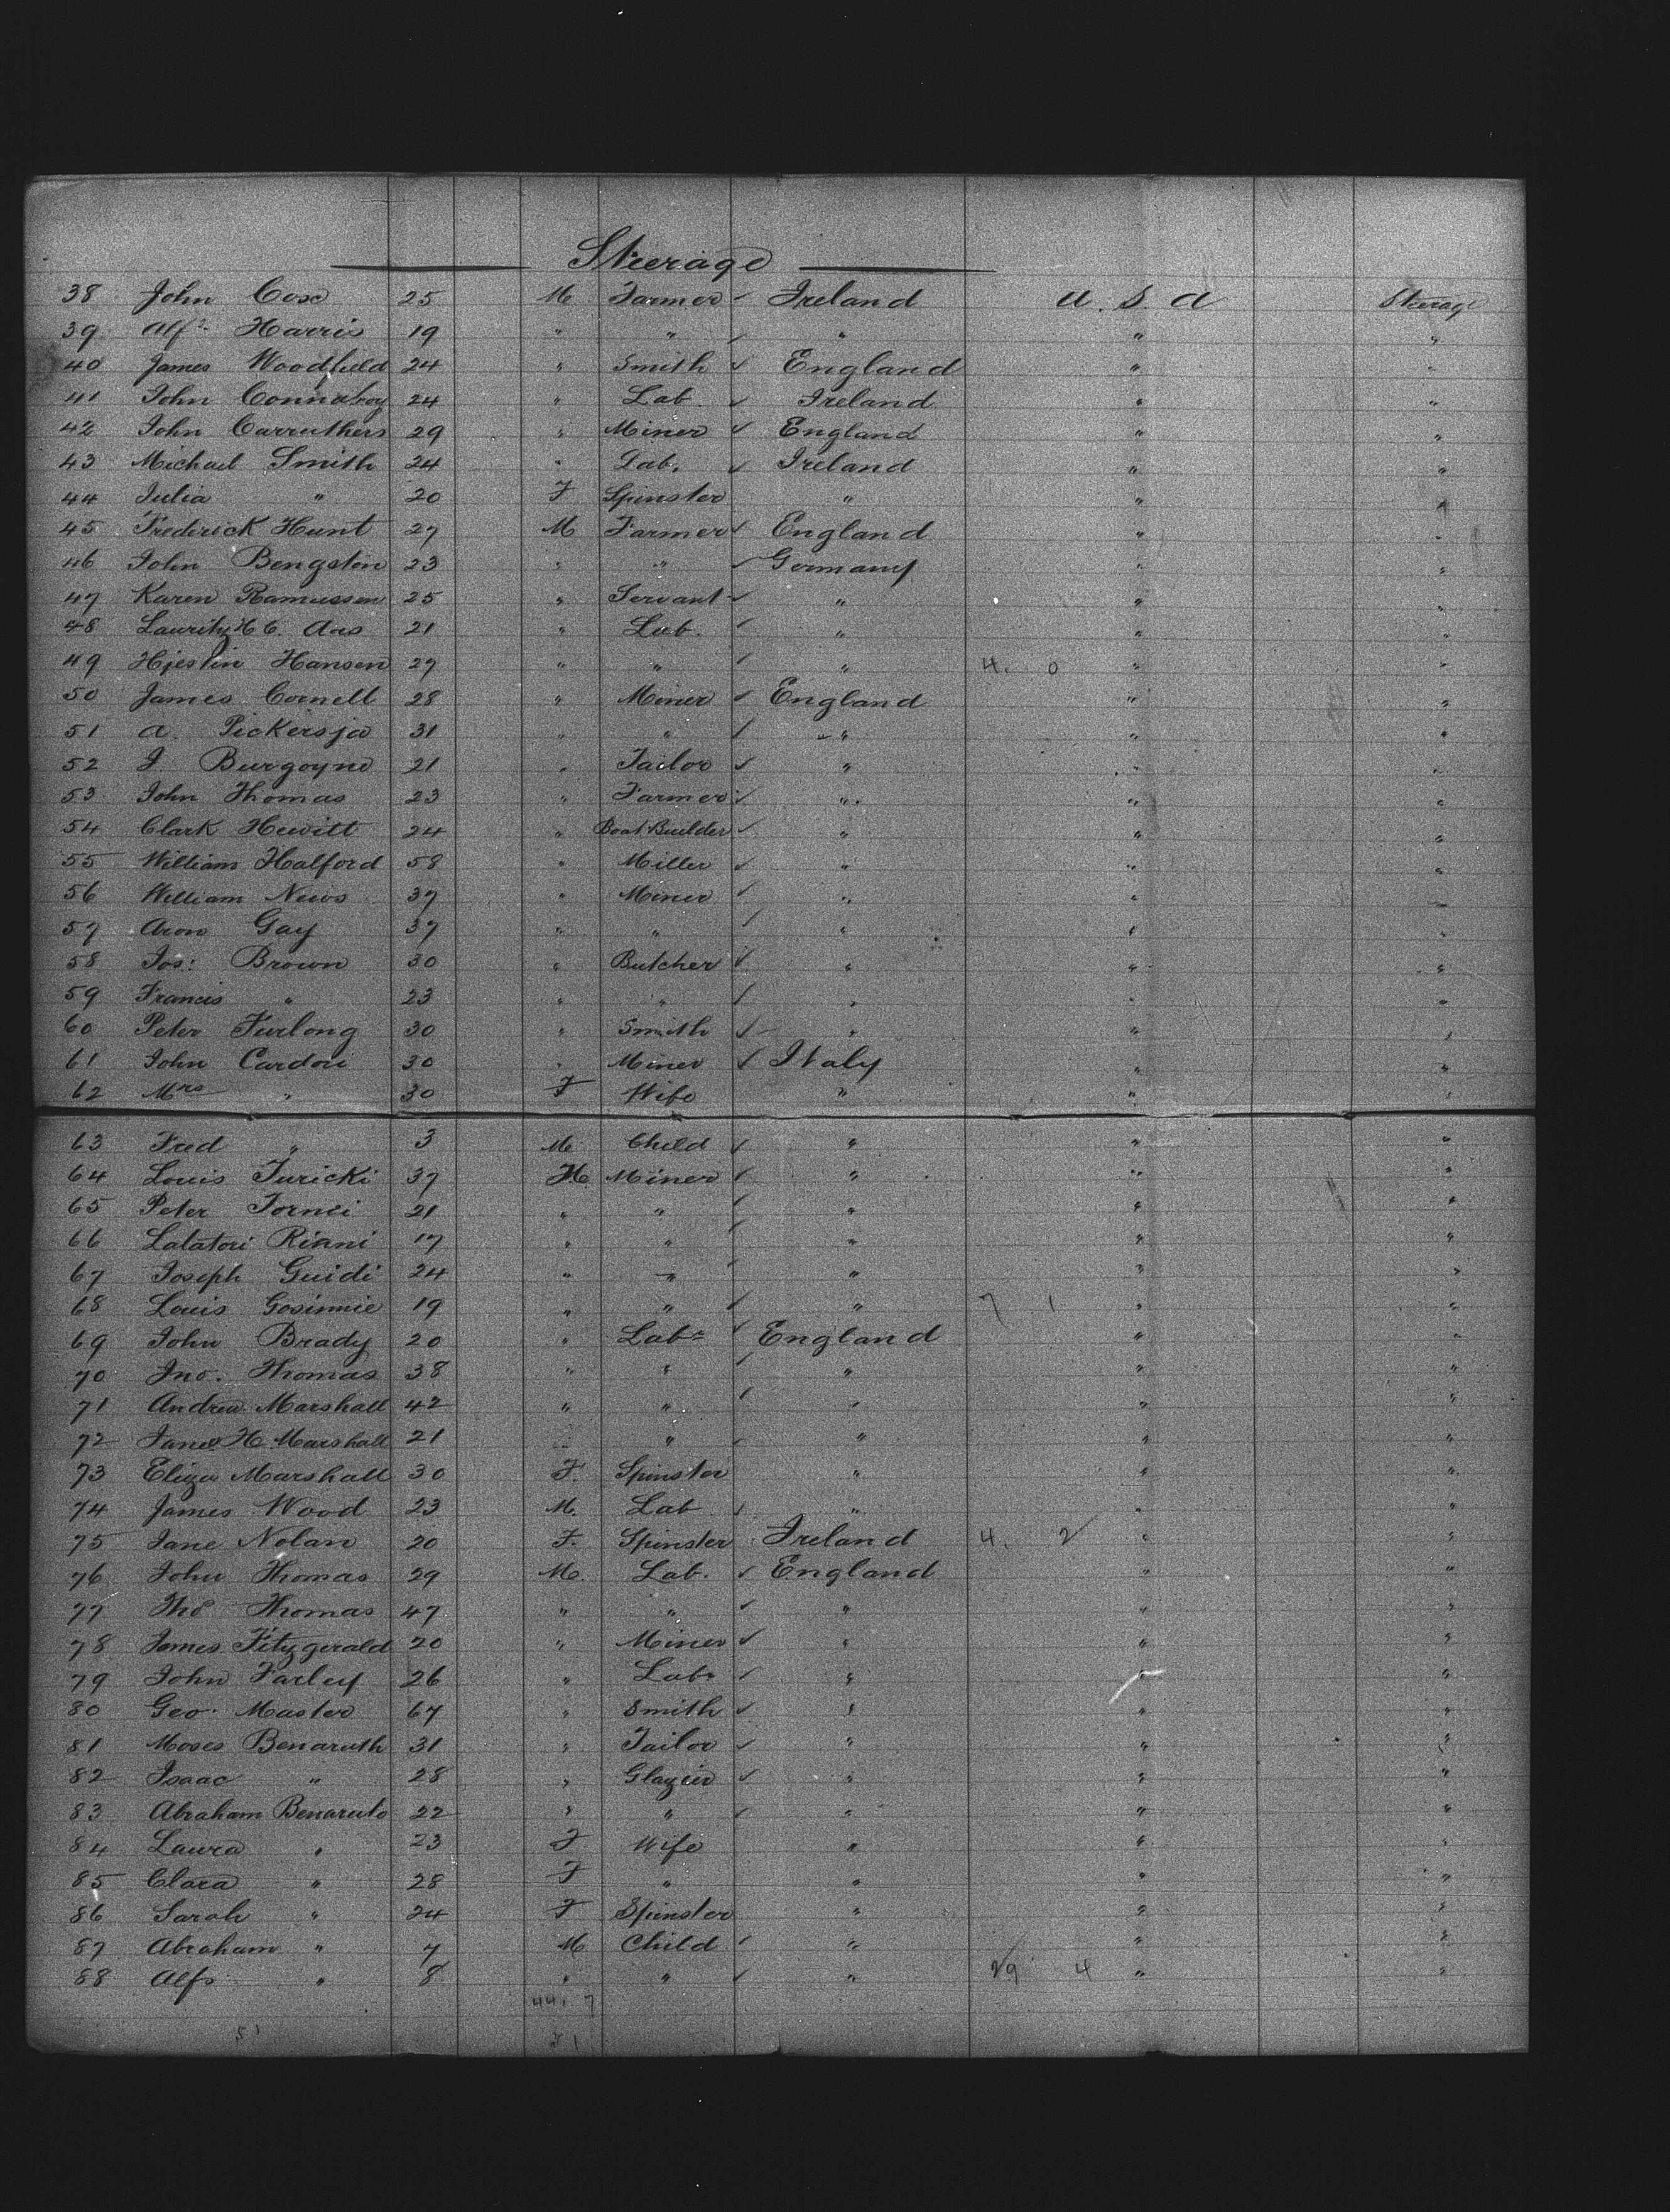 Steerage
38 John Cose 25 M Farmer ✓ Ireland U. S. A Steerage
39 Alfd. Harris 19 " " ✓ " " "
40 James Woodfield 24 " Smith ✓ England " "
41 John Connaboy 24 " Lab. ✓ Ireland " "
42 John Carruthers 29 " Miner ✓ England " "
43 Michael Smith 24 " Lab. ✓ Ireland " "
44 Julia " 20 F Spinster " " "
45 Frederick Hunt 27 M Farmer ✓ England " "
46 John Bengston 23 " " ✓ Germany " "
47 Karen Ramussen 25 " Servant ✓ " " "
48 Lauritz H C. Aas 21 " Lab. ✓ " " "
49 Hjestin Hansen 27 " " ✓ " 4. 0 " "
50 James Cornell 28 " Miner ✓ England " "
51 A. Pickersja 31 " " ✓ " " "
52 J Burgoyne 21 " Tailor ✓ " " "
53 John Thomas 23 " Farmer ✓ " " "
54 Clark Hewitt 24 " Boat Builder ✓ " " "
55 William Halford 58 " Miller ✓ " " "
56 William News 37 " Miner ✓ " " "
57 Aron Gay 37 " " ✓ " " "
58 Jos: Brown 30 " Butcher ✓ " " "
59 Francis " 23 " " ✓ " " "
60 Peter Furlong 30 " Smith ✓ " " "
61 John Cardoii 30 " Miner ✓ Italy " "
62 Mrs " 30 F Wife " " "
63 Fred " 3 M Child ✓ " " "
64 Louis Turicki 37 M Miner ✓ " " "
65 Peter Tornei 21 " " ✓ " " "
66 Salatori Riani 17 " " ✓ " " "
67 Joseph Guidi 24 " " ✓ " " "
68 Louis Gosinnie 19 " " ✓ " 7 1 " "
69 John Brady 20 " Labr ✓ England " "
70 Jno. Thomas 38 " " ✓ " " "
71 Andrew Marshall 42 " " ✓ " " "
72 James H. Marshall 21 " " ✓ " " "
73 Eliza Marshall 30 F. Spinster " " "
74 James Wood 23 M. Lab ✓ " " "
75 Jane Nolan 20 F. Spinster Ireland 4. 2 " "
76 John Thomas 29 M. Lab. ✓ England " "
77 Tho Thomas 47 " " ✓ " " "
78 James Fitzgerald 20 " Miner ✓ " " "
79 John Farley 26 " Labr ✓ " " "
80 Geo. Master 67 " Smith ✓ " " "
81 Moses Benaruth 31 " Tailor ✓ " " "
82 Isaac " 28 " Glazier ✓ " " "
83 Abraham Benaruto 22 " " ✓ " " "
84 Laura " 23 F Wife " " "
85 Clara " 28 F " " " "
86 Sarah " 24 F Spinster " " "
87 Abraham " 7 M Child ✓ " " "
88 Alfr " 8 " " ✓ " 29 4 " "
44. 7
51 51